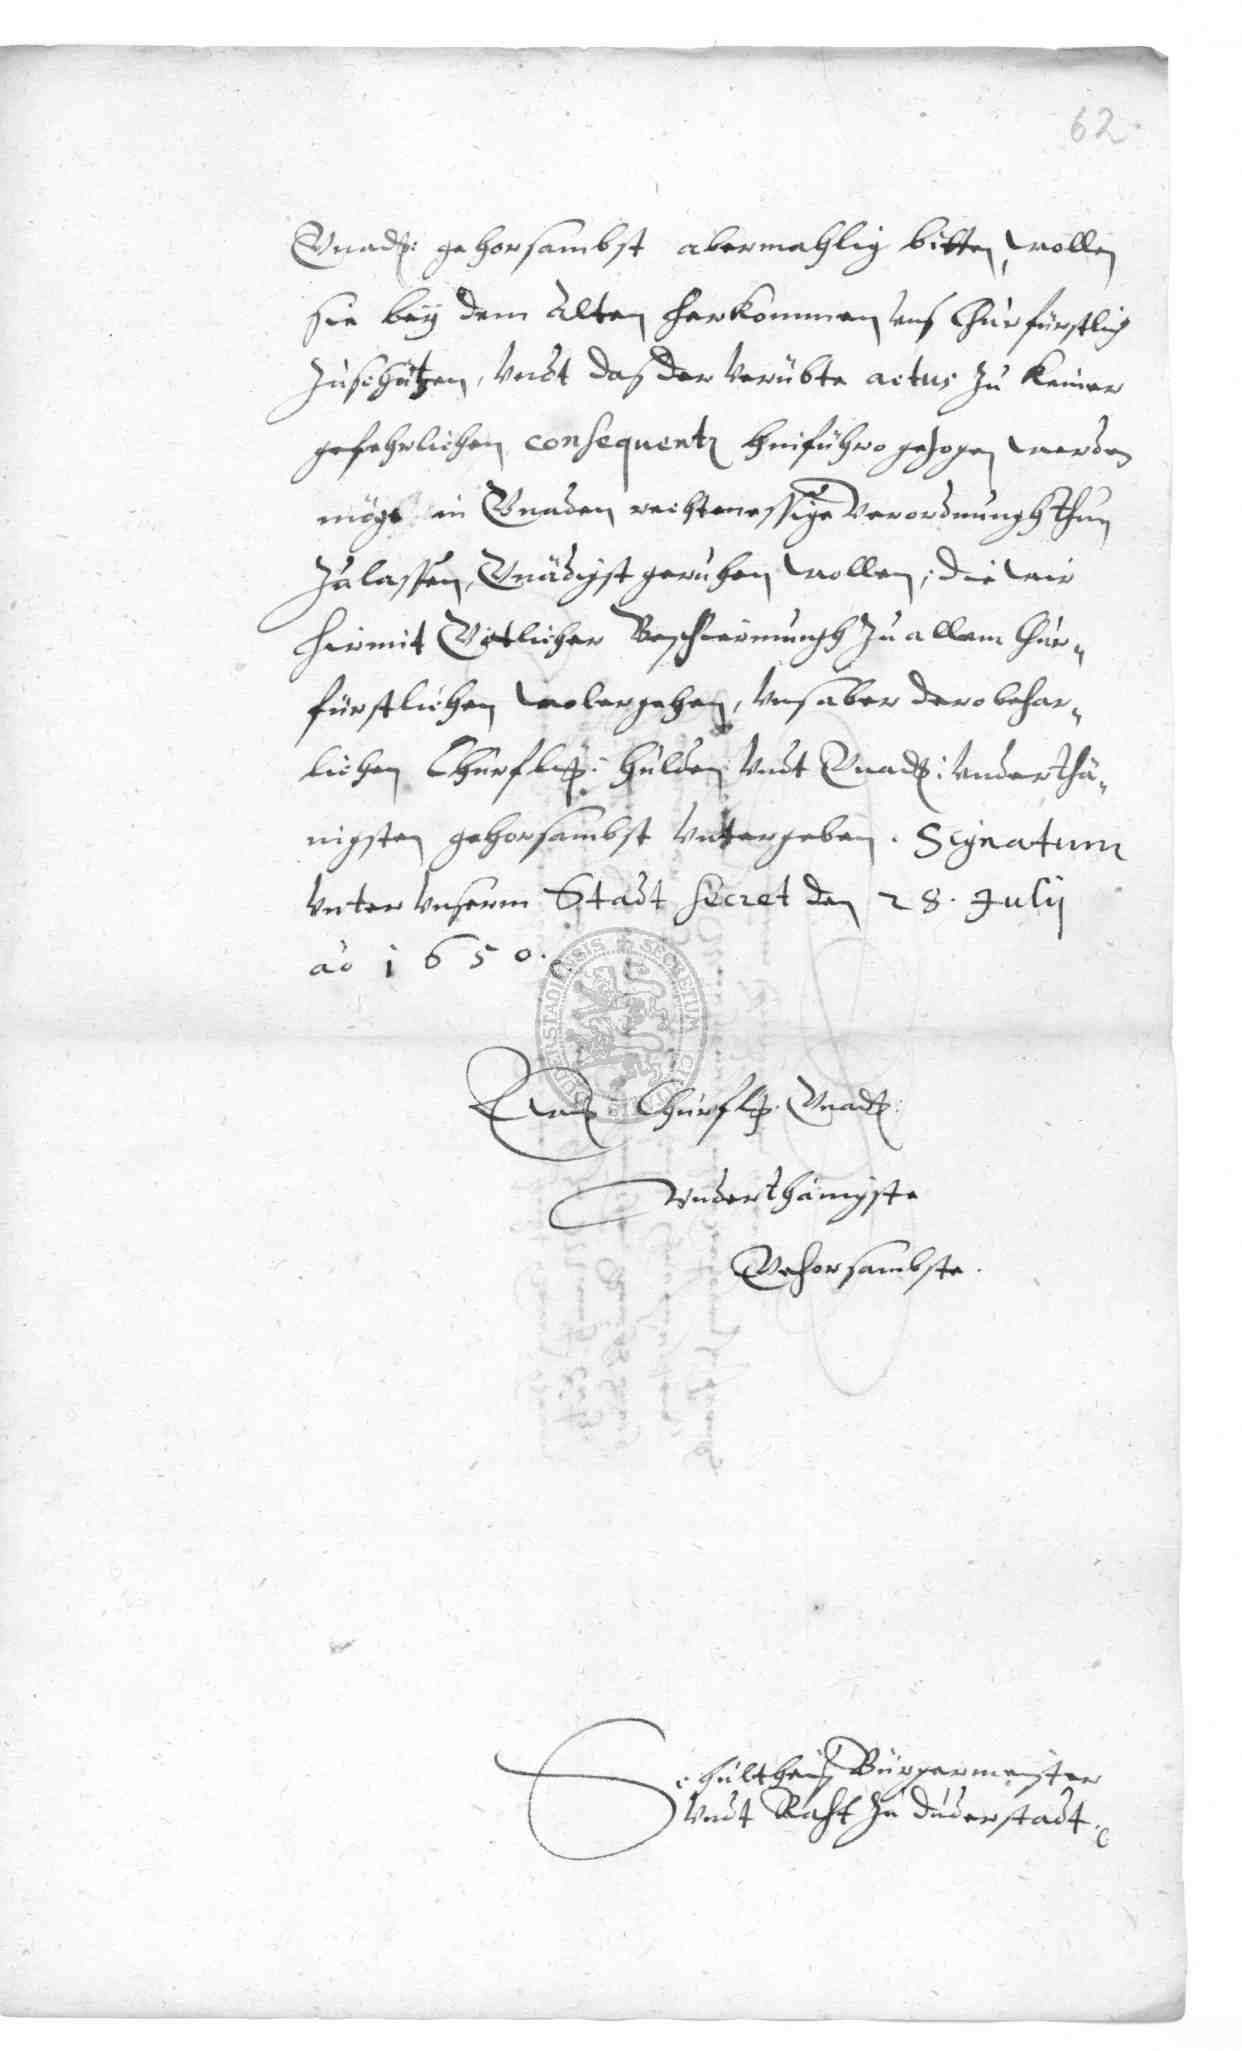 62
Gnad: gehorsambst abermahlig bitten, wollen
sie bey dem Alten herkommen uns Churfürstlich
zuschützen, vndt das der verübte actus zu keiner
gefehrlichen consequentz hinführo gezogen werden
möge in Gnaden rechtmessige verordnungh thun
zulassen, Gnädigst geruhen wollen, die wir
hirmit Götlicher Beschirmungh zu allem Chur-
fürstlichen wolergehen, vns aber dero behar-
lichen Churfl: hulden vndt Gnad: vnderthä-
nigsten gehorsambst vntergeben. Signatum
vnter vnserm Stadt Secret den 28. Julij
ao 1650.
Churfl: Gnad:
vnderthänigste
Gehorsambste.
Schultheiß Bürgermeister
vndt Raht zu Duderstadt.